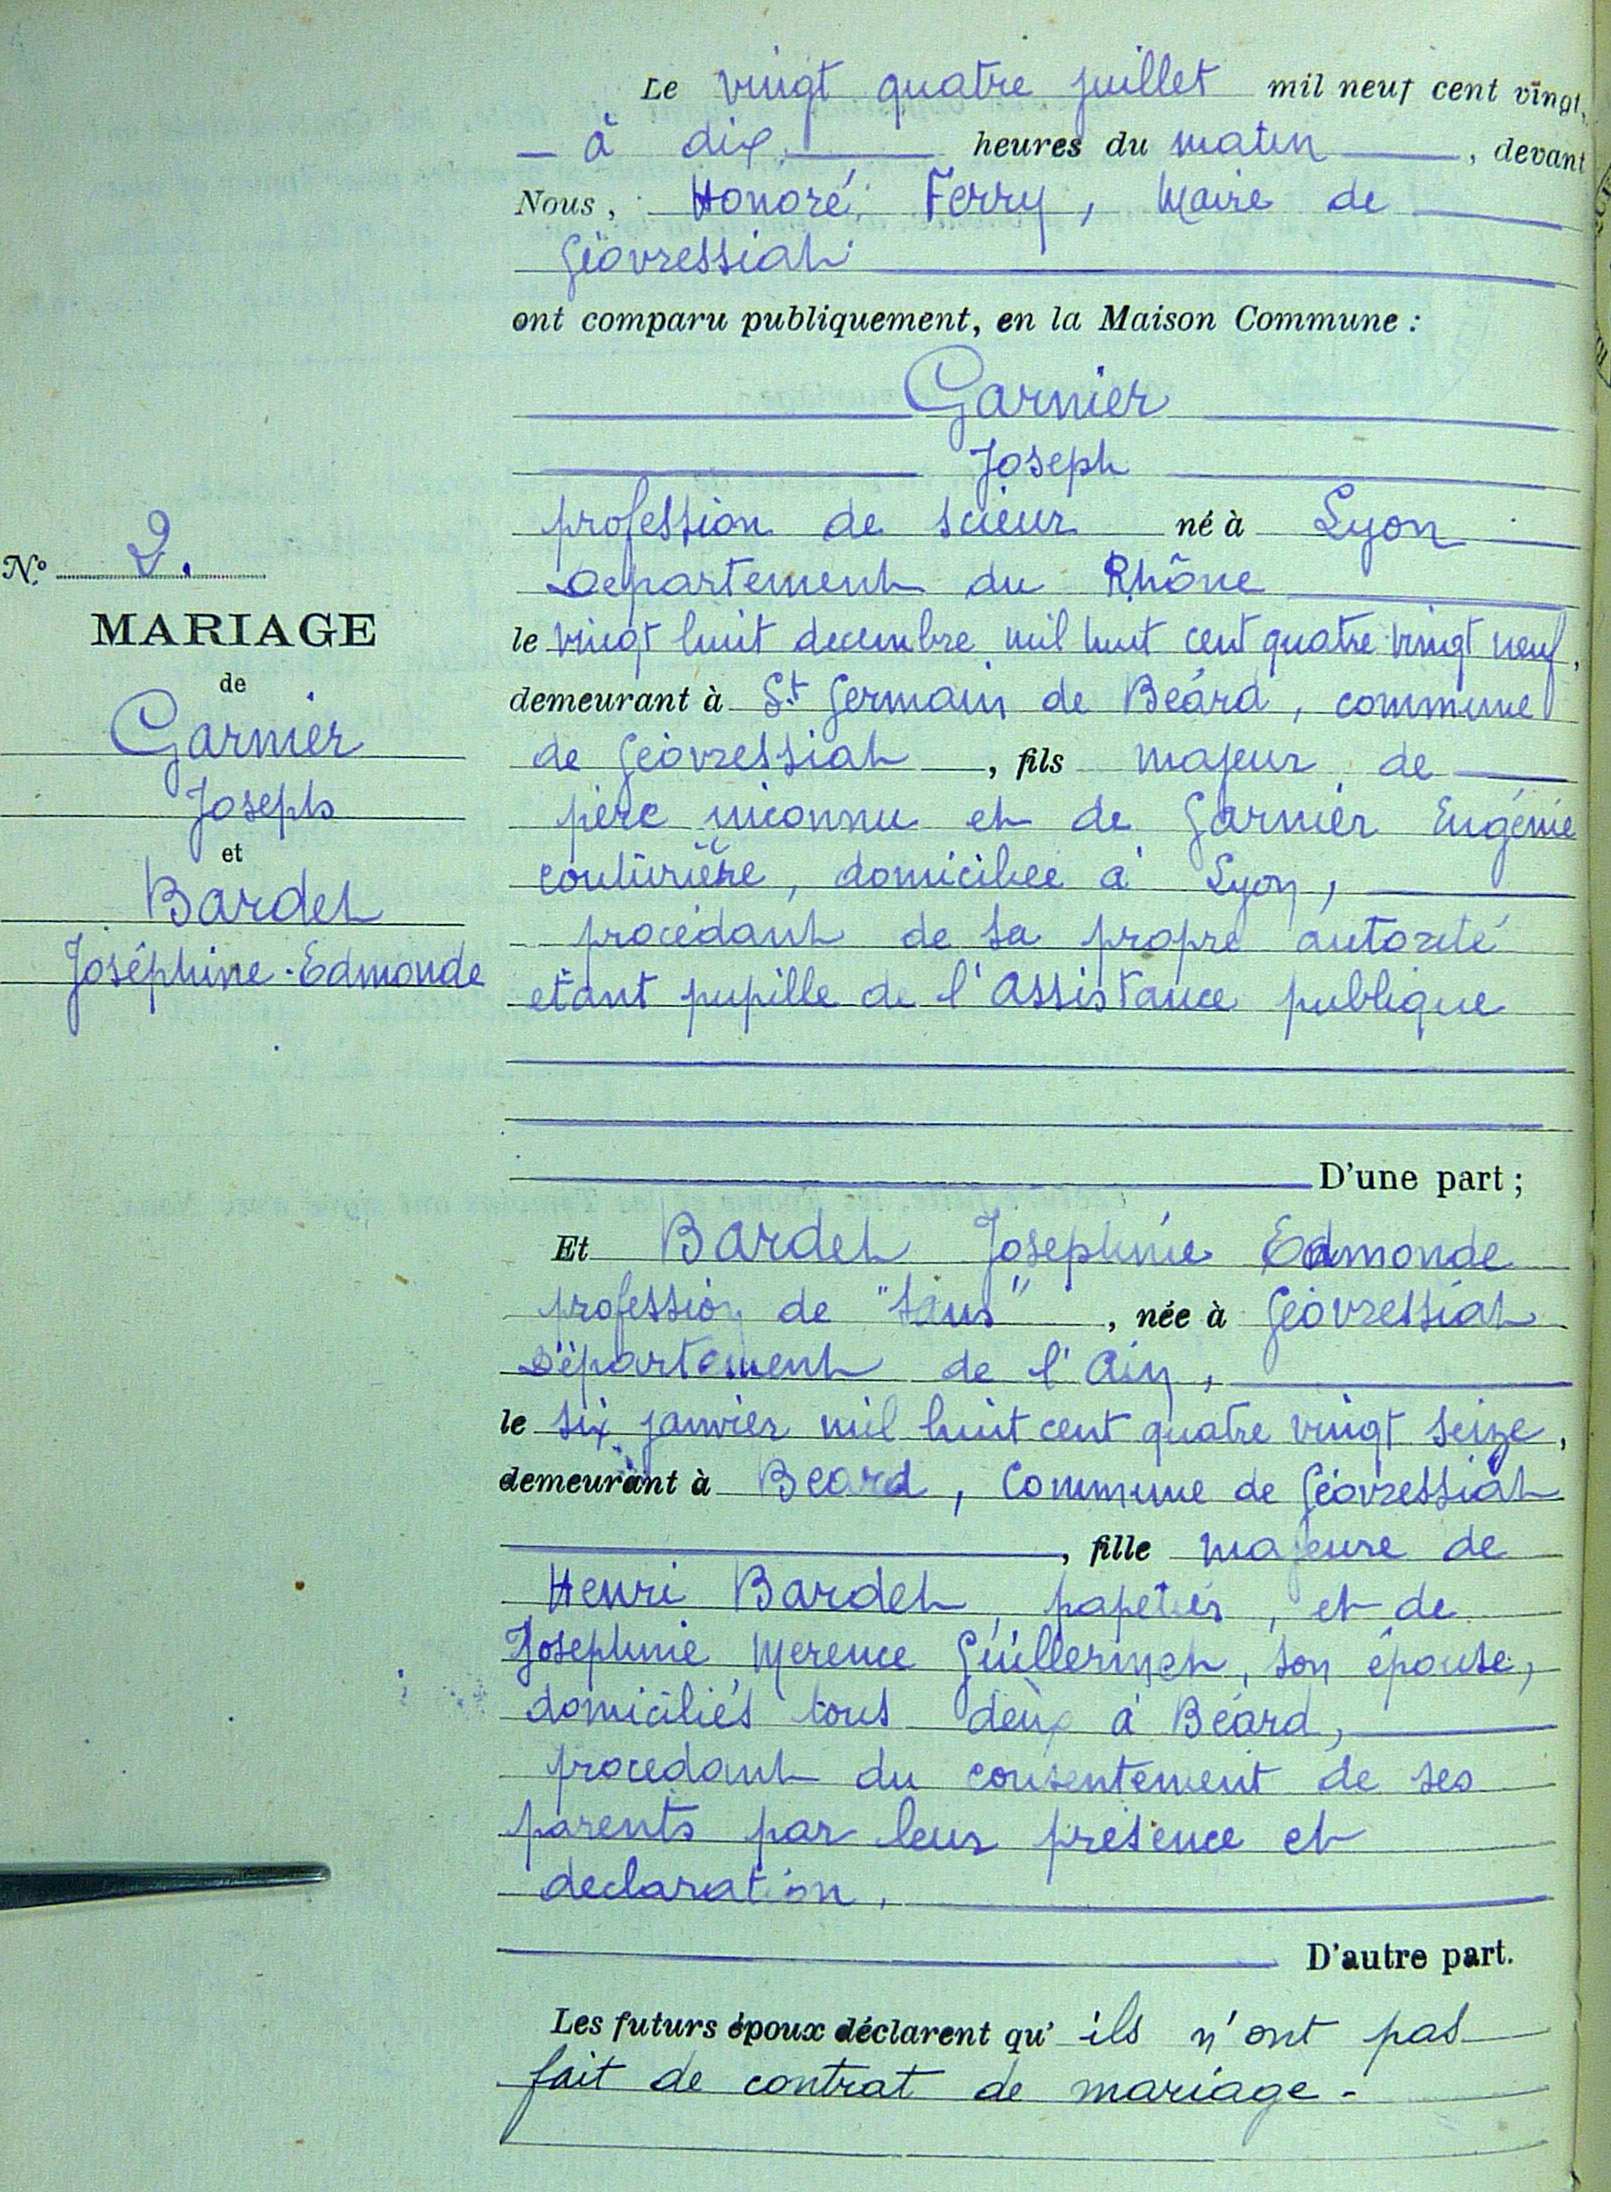 Le vingt quatre juillet mil neuf cent vingt,
à dix heures du matin, devant
Nous, Honoré Ferry, Maire de
Géovressiat
ont comparu publiquement, en la Maison Commune :
Garnier
Joseph
profession de scieur né à Lyon
Departement du Rhône
le vingt huit decembre mil huit cent quatre vingt neuf,
demeurant à St Germain de Béard, commune
de Géovressiat, fils majeur de
père inconnu et de Garnier Eugénie
couturière, domiciliée à Lyon,
procédant de sa propre autorité
étant pupille de l'Assistance publique
D'une part ;
Et Bardet Josephine Edmonde
profession de "sans", née à Géovressiat
Département de l'Ain,
le six janvier mil huit cent quatre vingt seize,
demeurant à Beard, Commune de Géovressiat
, fille majeure de
Henri Bardet, papetier, et de
Josephine Merence Guillermet, son épouse,
domiciliés tous deux à Béard,
procedant du consentement de ses
parents par leur présence et
declaration.
D'autre part.
Les futurs époux déclarent qu'ils n'ont pas
fait de contrat de mariage.-
N° 2.
MARIAGE
de
Garnier
Joseph
et
Bardet
Joséphine-Edmonde